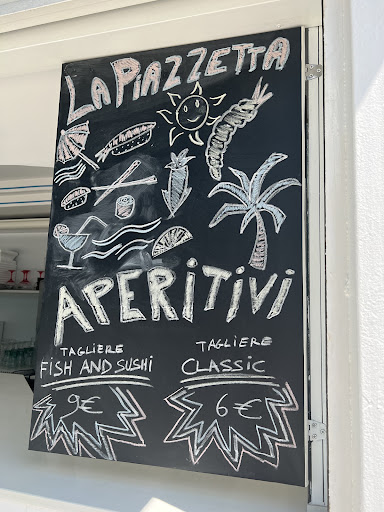 LA PIAZZETTA
APERITIVI
TAGLIERE
FISH AND SUSHI
9€
TAGLIERE
CLASSIC
6€